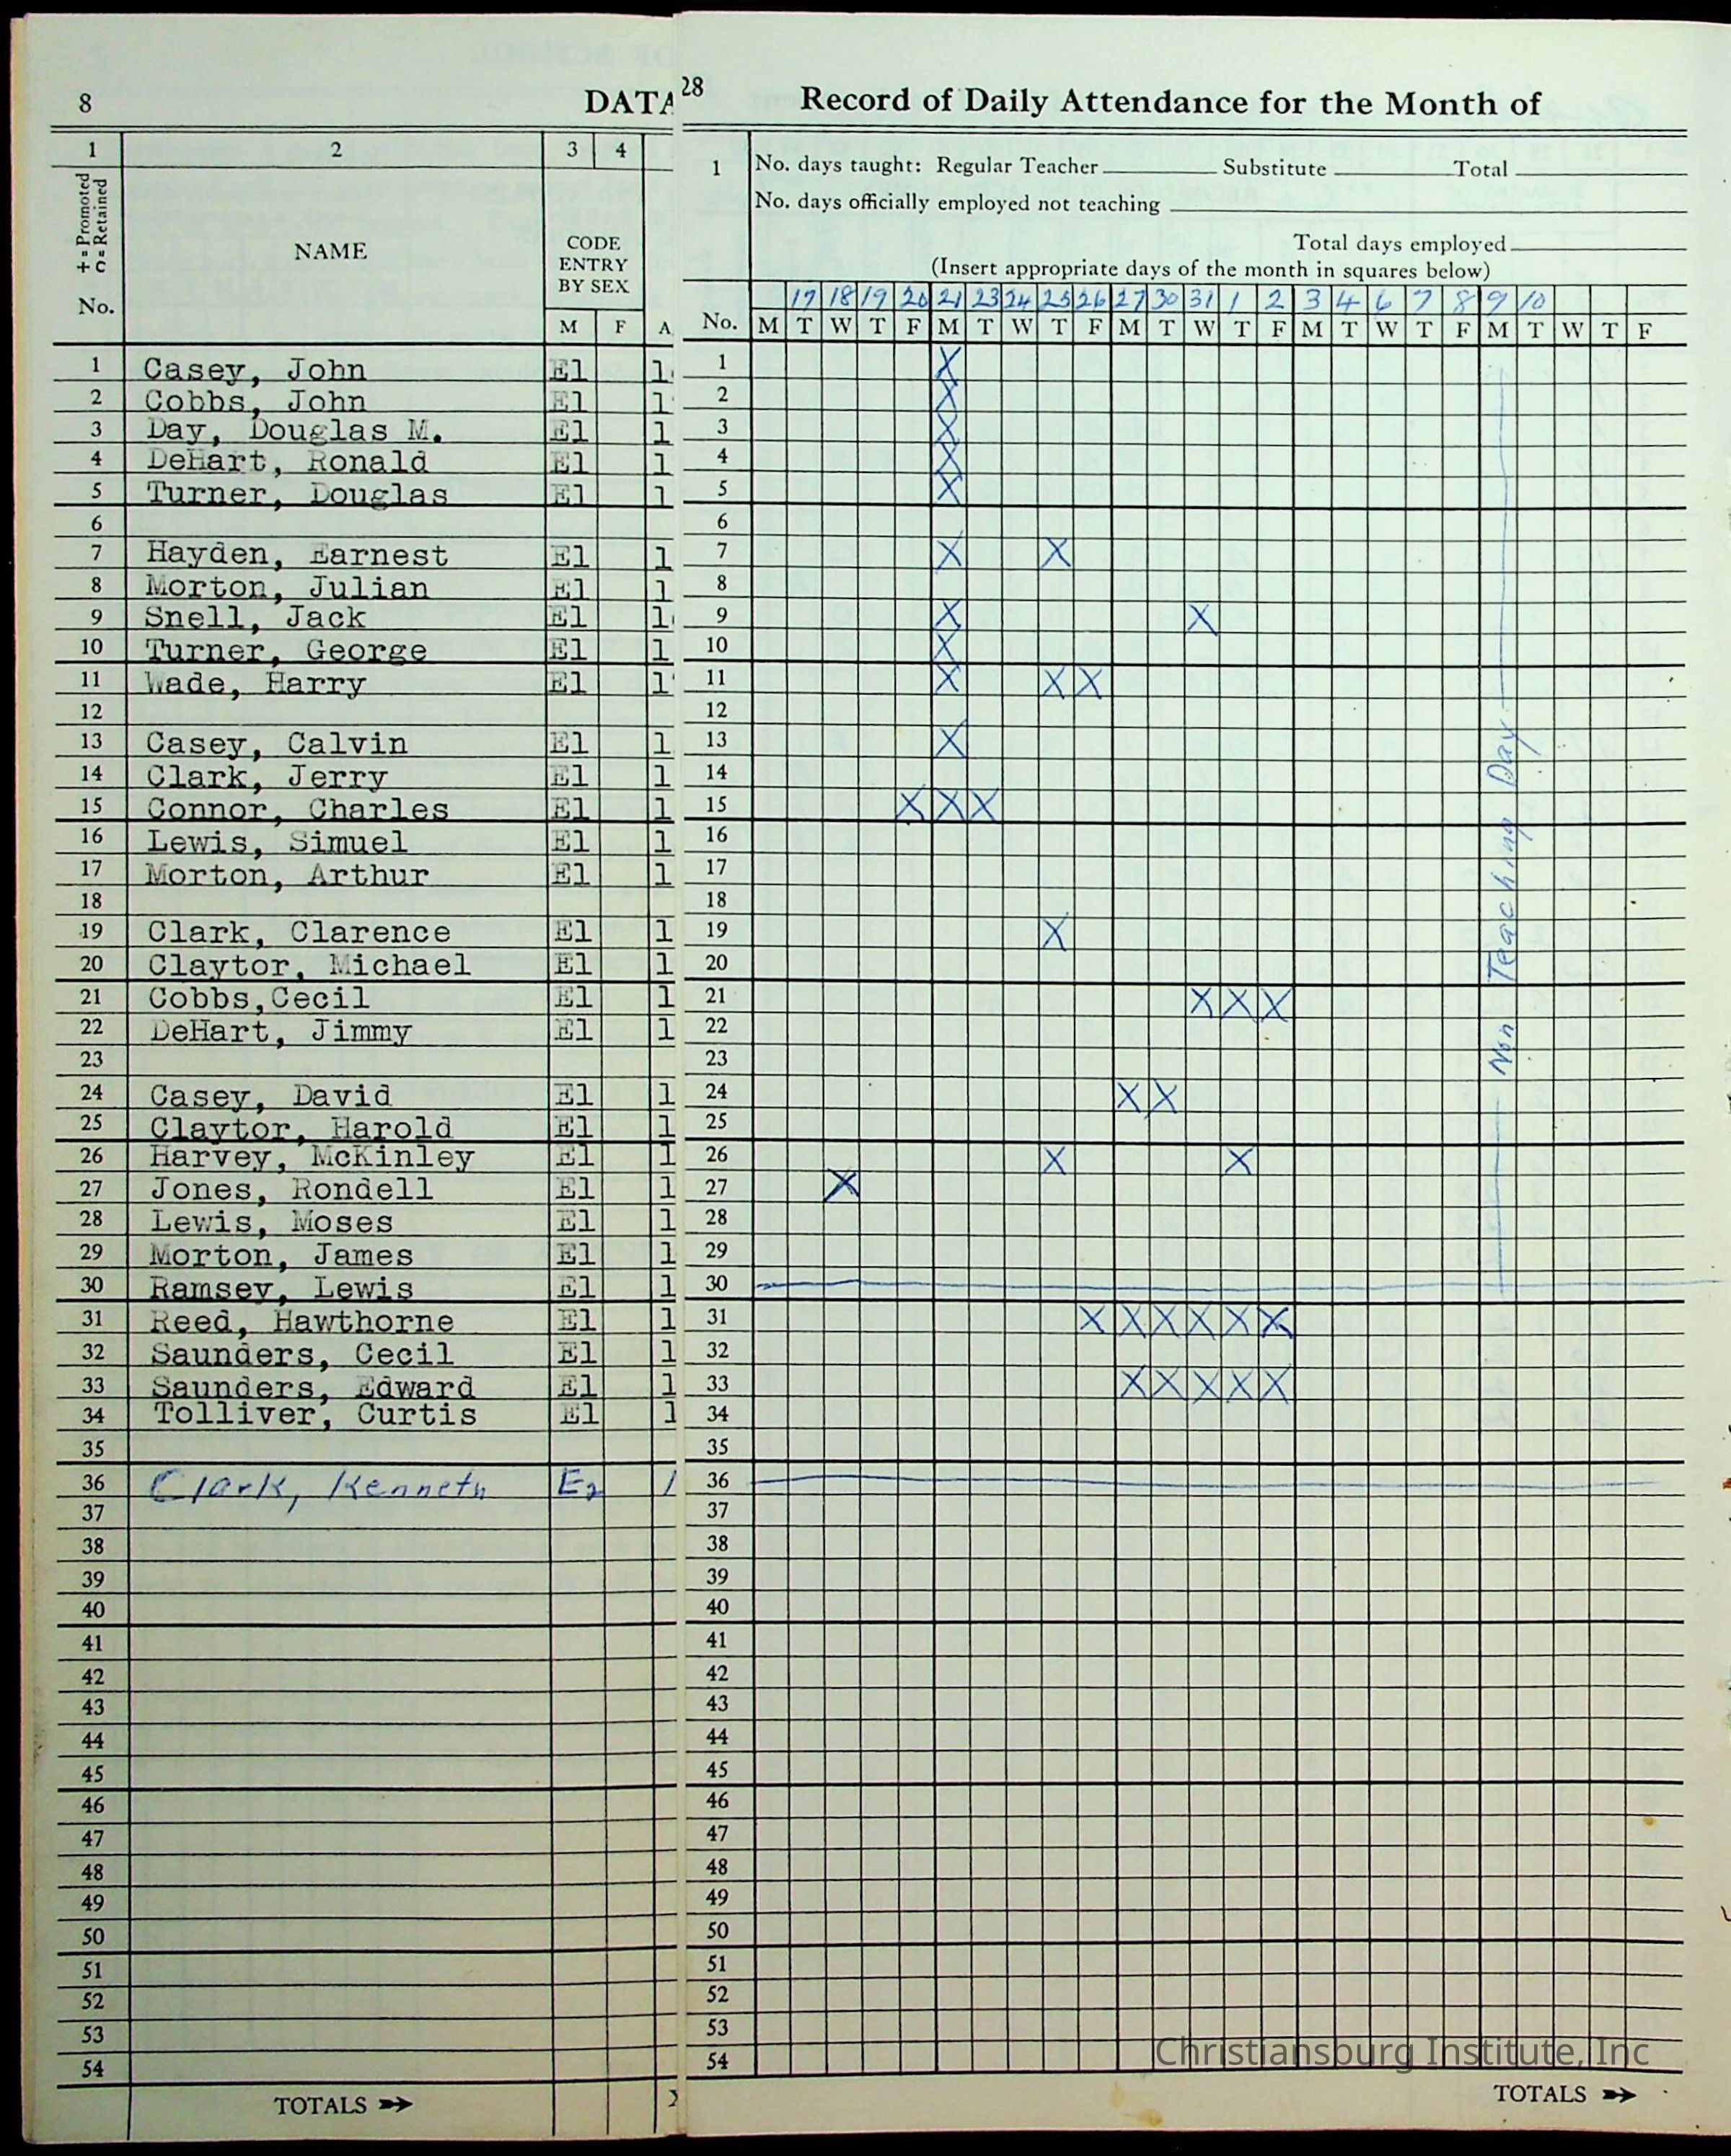 8
DATA
1 2 3 4
+ = Promoted
c = Retained
No.
NAME
CODE
ENTRY
BY SEX
M F A
1 Casey, John El 1
2 Cobbs, John El 1
3 Day, Douglas M. El 1
4 DeHart, Ronald El 1
5 Turner, Douglas El 1
6
7 Hayden, Earnest El 1
8 Morton, Julian El 1
9 Snell, Jack El 1
10 Turner, George El 1
11 Wade, Harry El 1
12
13 Casey, Calvin El 1
14 Clark, Jerry El 1
15 Connor, Charles El 1
16 Lewis, Simuel El 1
17 Morton, Arthur El 1
18
19 Clark, Clarence El 1
20 Claytor, Michael El 1
21 Cobbs,Cecil El 1
22 DeHart, Jimmy El 1
23
24 Casey, David El 1
25 Claytor, Harold El 1
26 Harvey, McKinley El 1
27 Jones, Rondell El 1
28 Lewis, Moses El 1
29 Morton, James El 1
30 Ramsey, Lewis El 1
31 Reed, Hawthorne El 1
32 Saunders, Cecil El 1
33 Saunders, Edward El 1
34 Tolliver, Curtis El 1
35
36 Clark, Kenneth E2 1
37
38
39
40
41
42
43
44
45
46
47
48
49
50
51
52
53
54
TOTALS
28
Record of Daily Attendance for the Month of
1 No. days taught: Regular Teacher Substitute Total
No. days officially employed not teaching
Total days employed
(Insert appropriate days of the month in squares below)
17 18 19 20 21 23 24 25 26 27 30 31 1 2 3 4 6 7 8 9 10
No. M T W T F M T W T F M T W T F M T W T F M T W T F
1 X
2 X
3 X
4 X
5 X
6
7 X X
8
9 X X
10 X
11 X X X
12
13 X
14
15 X X X
16
17
18
19 X
20
21 X X X
22
23
24 X X
25
26 X X
27 X
28
29
30
31 X X X X X X
32
33 X X X X X
34
35
36
37
38
39
40
41
42
43
44
45
46
47
48
49
50
51
52
53
54
Non Teaching Day
TOTALS
Christiansburg Institute, Inc